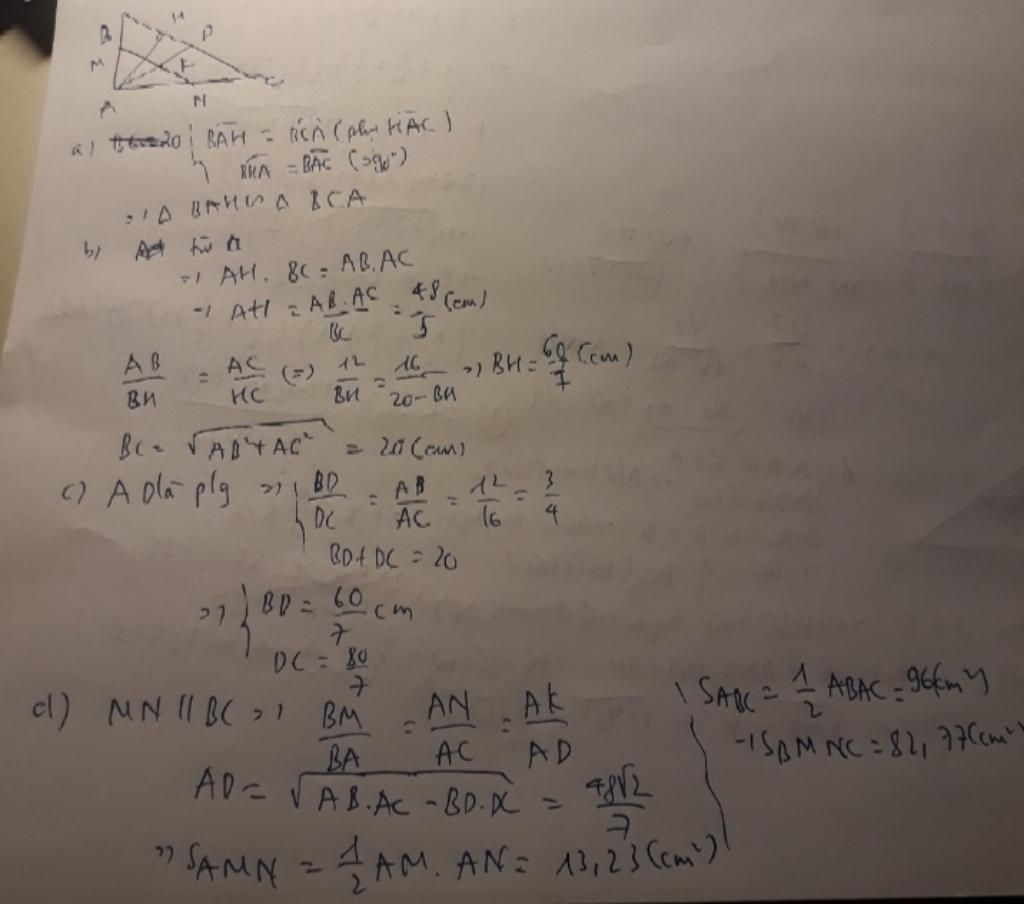 B H D
M K
A N C
a) 20 { BAH = BCA (phụ HAC)
BHA = BAC (=90°)
=> Δ BAH ∽ Δ BCA
b) từ a
=> AH. BC = AB.AC
=> AH = AB.AC / BC = 48/5 (cm)
AB/BH = AC/HC (=) 12/BH = 16/(20-BH) => BH = 60/7 (cm)
BC = √(AB²+AC²) = 20 (cm)
c) AD là p/g => { BD/DC = AB/AC = 12/16 = 3/4
BD+DC = 20
=> { BD = 60/7 cm
DC = 80/7
d) MN // BC => BM/BA = AN/AC = AK/AD
AD = √(AB.AC - BD.DC) = 48√2/7
=> SAMN = 1/2 AM. AN = 13,23 (cm²)
SABC = 1/2 ABAC = 96(cm²)
=> SBMNC = 82,77(cm²)